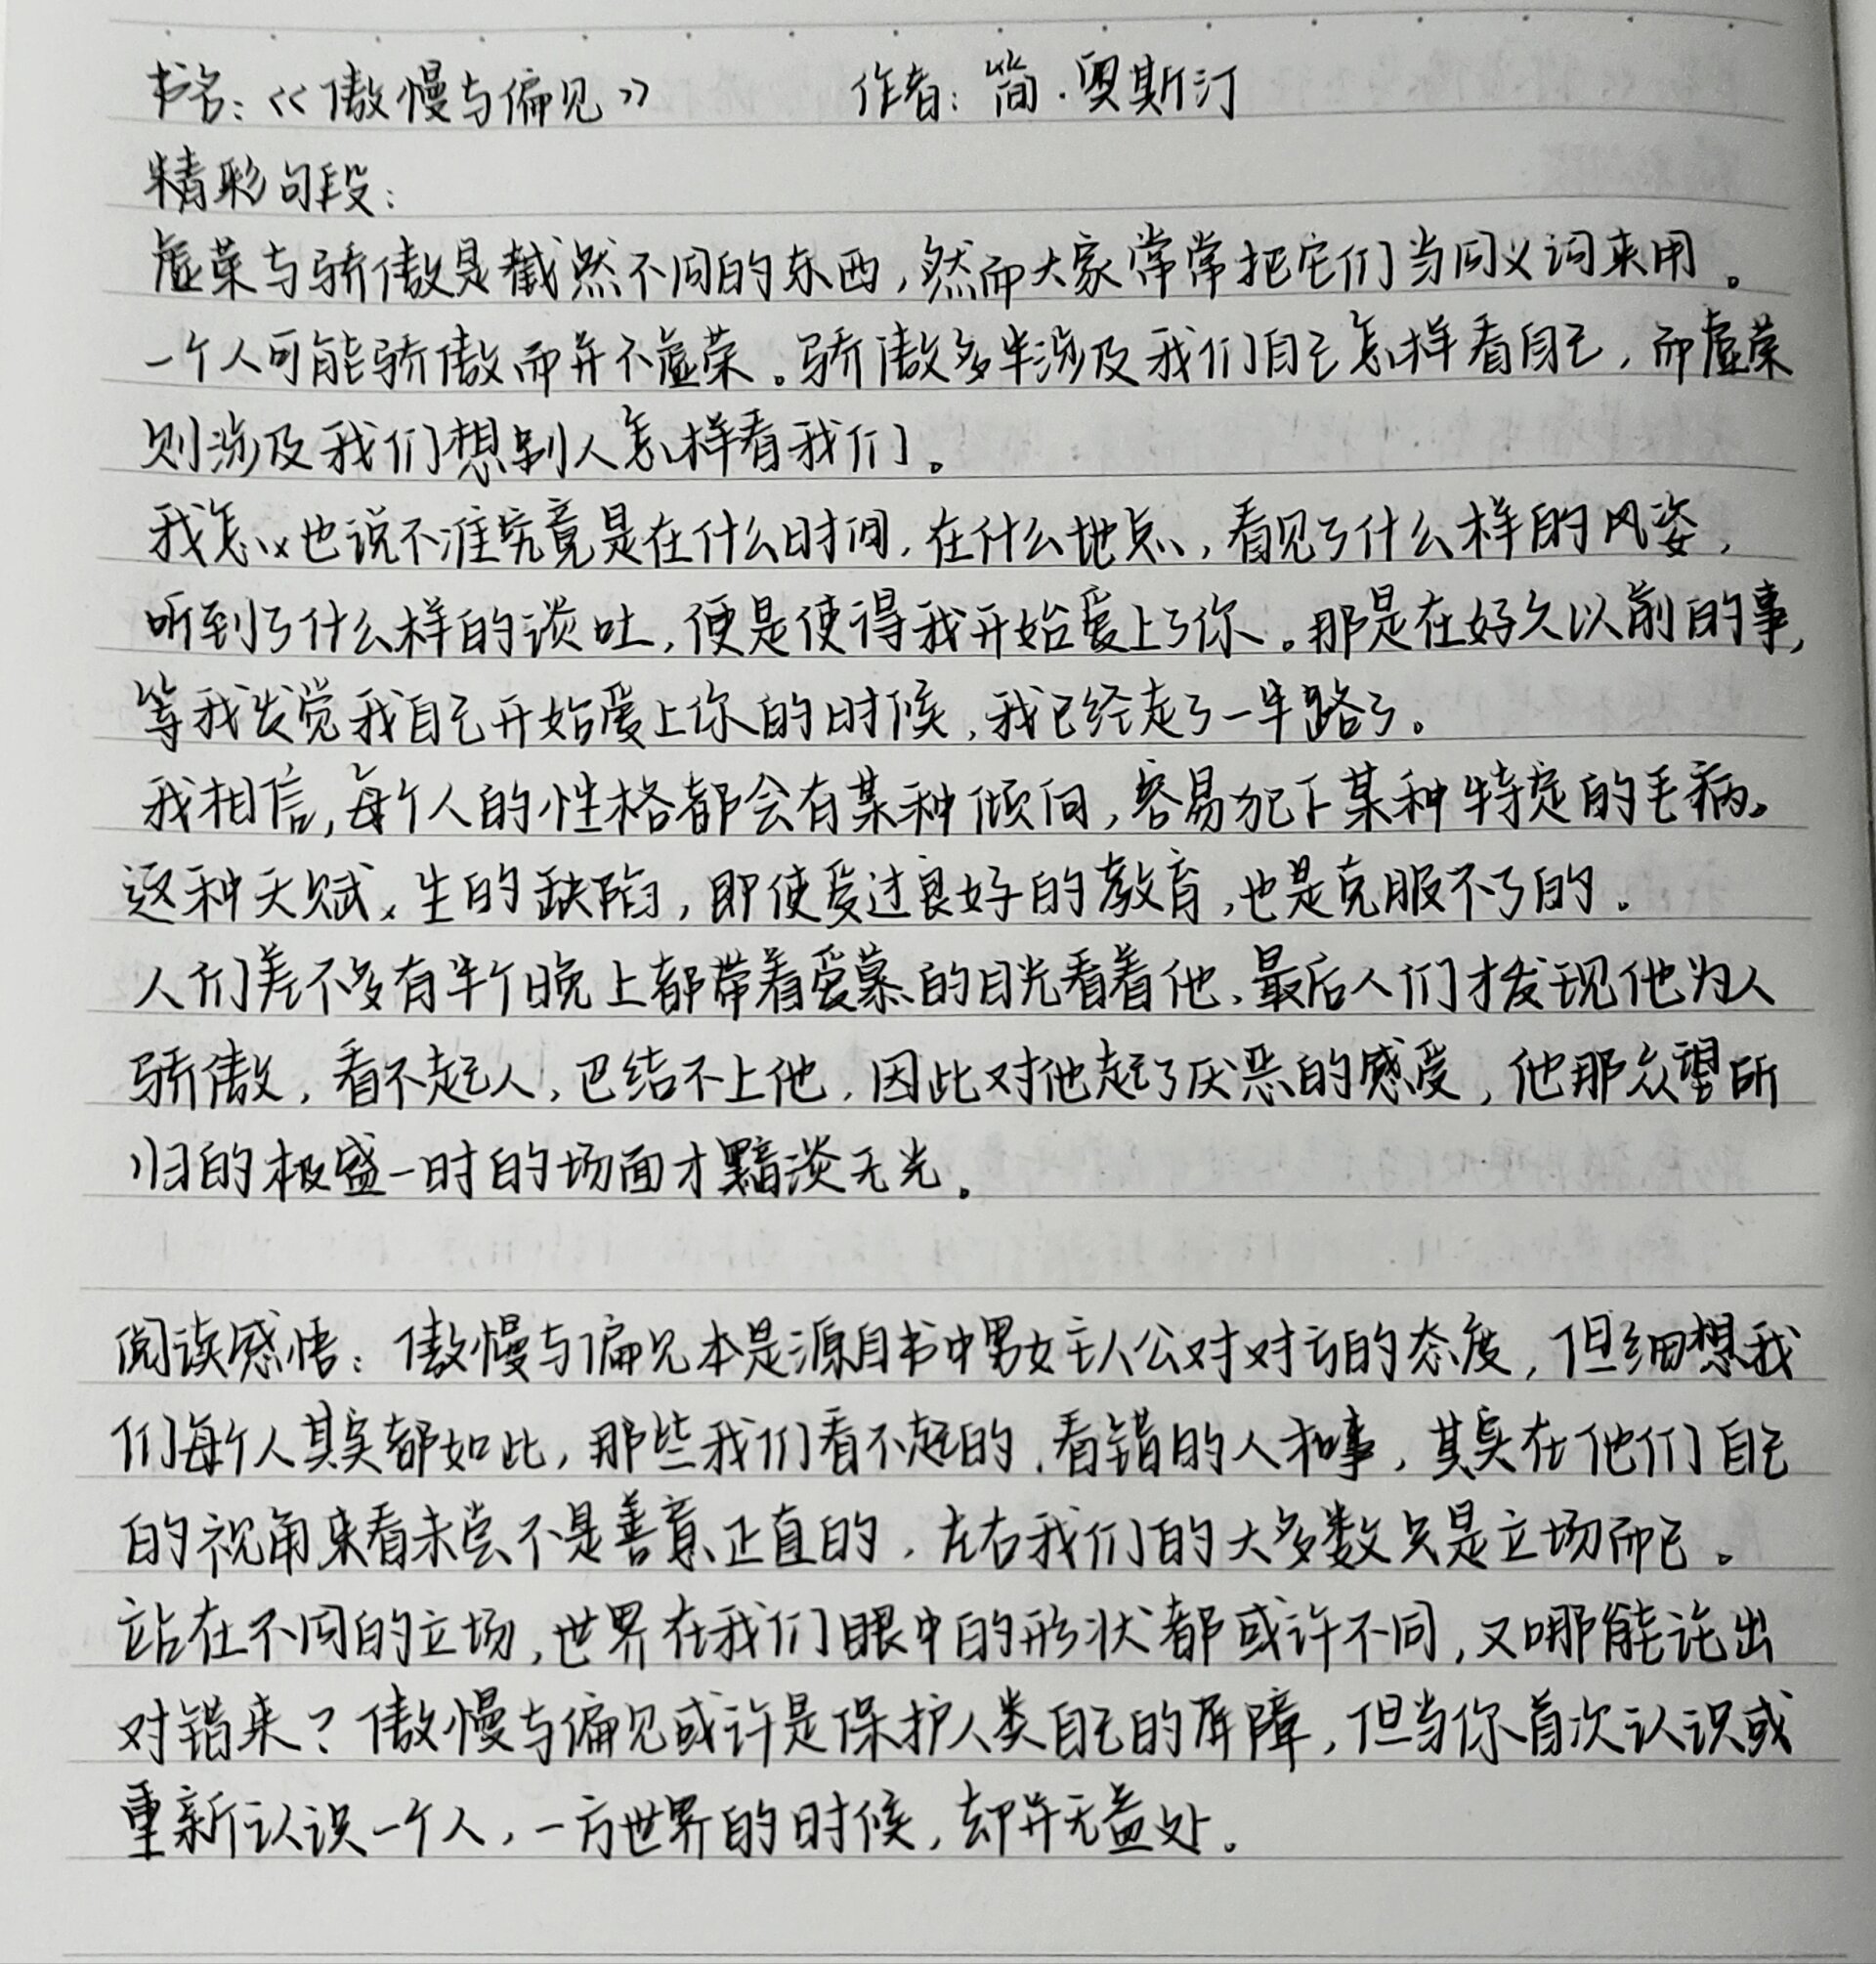 书名：《傲慢与偏见》 作者：简·奥斯汀
精彩句段：
虚荣与骄傲是截然不同的东西，然而大家常常把它们当同义词来用。
一个人可能骄傲而并不虚荣。骄傲多半涉及我们自己怎样看自己，而虚荣
则涉及我们想别人怎样看我们。
我怎么也说不准究竟是在什么时间，在什么地点，看见了什么样的风姿，
听到了什么样的谈吐，便是使得我开始爱上了你。那是在好久以前的事，
等我发觉我自己开始爱上你的时候，我已经走了一半路了。
我相信，每个人的性格都会有某种倾向，容易犯下某种特定的毛病。
这种天赋、生的缺陷，即使受过良好的教育，也是克服不了的。
人们差不多有半个晚上都带着爱慕的目光看着他，最后人们才发现他为人
骄傲，看不起人，巴结不上他，因此对他起了厌恶的感受，他那众望所
归的极盛一时的场面才黯淡无光。
阅读感悟：傲慢与偏见本是源自书中男女主人公对对方的态度，但细想我
们每个人其实都如此，那些我们看不起的、看错的人和事，其实在他们自己
的视角来看未尝不是善意正直的，左右我们的大多数只是立场而已。
站在不同的立场，世界在我们眼中的形状都或许不同，又哪能论出
对错来？傲慢与偏见或许是保护人类自己的屏障，但当你首次认识或
重新认识一个人，一方世界的时候，却并无益处。